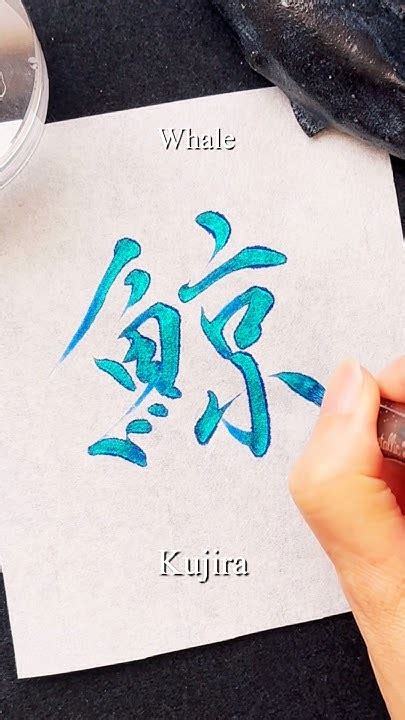 Whale
鯨
Kujira